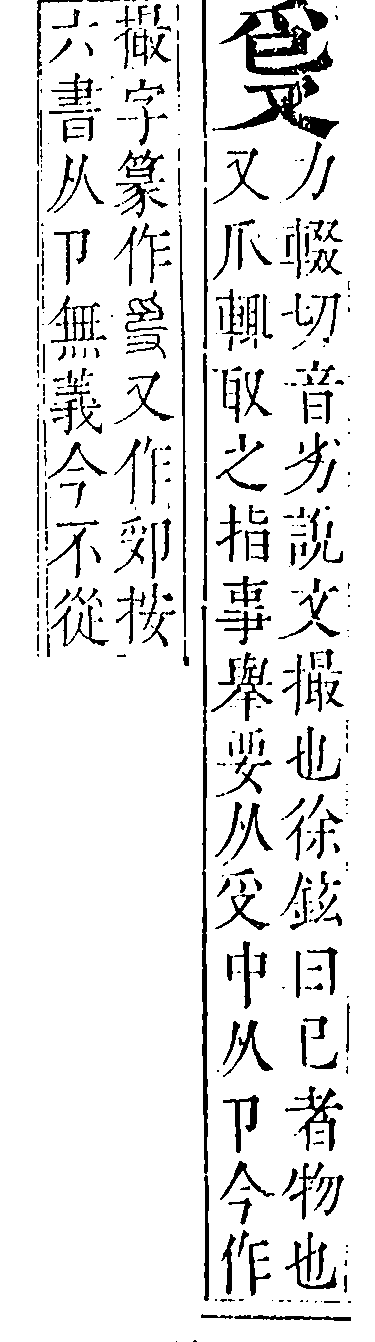 力輟切音劣說文撮也徐鉉曰已者物也
又爪輙取之指事舉要从𠬪中从卩今作
撮字篆作又作按
六書从卩無義今不從